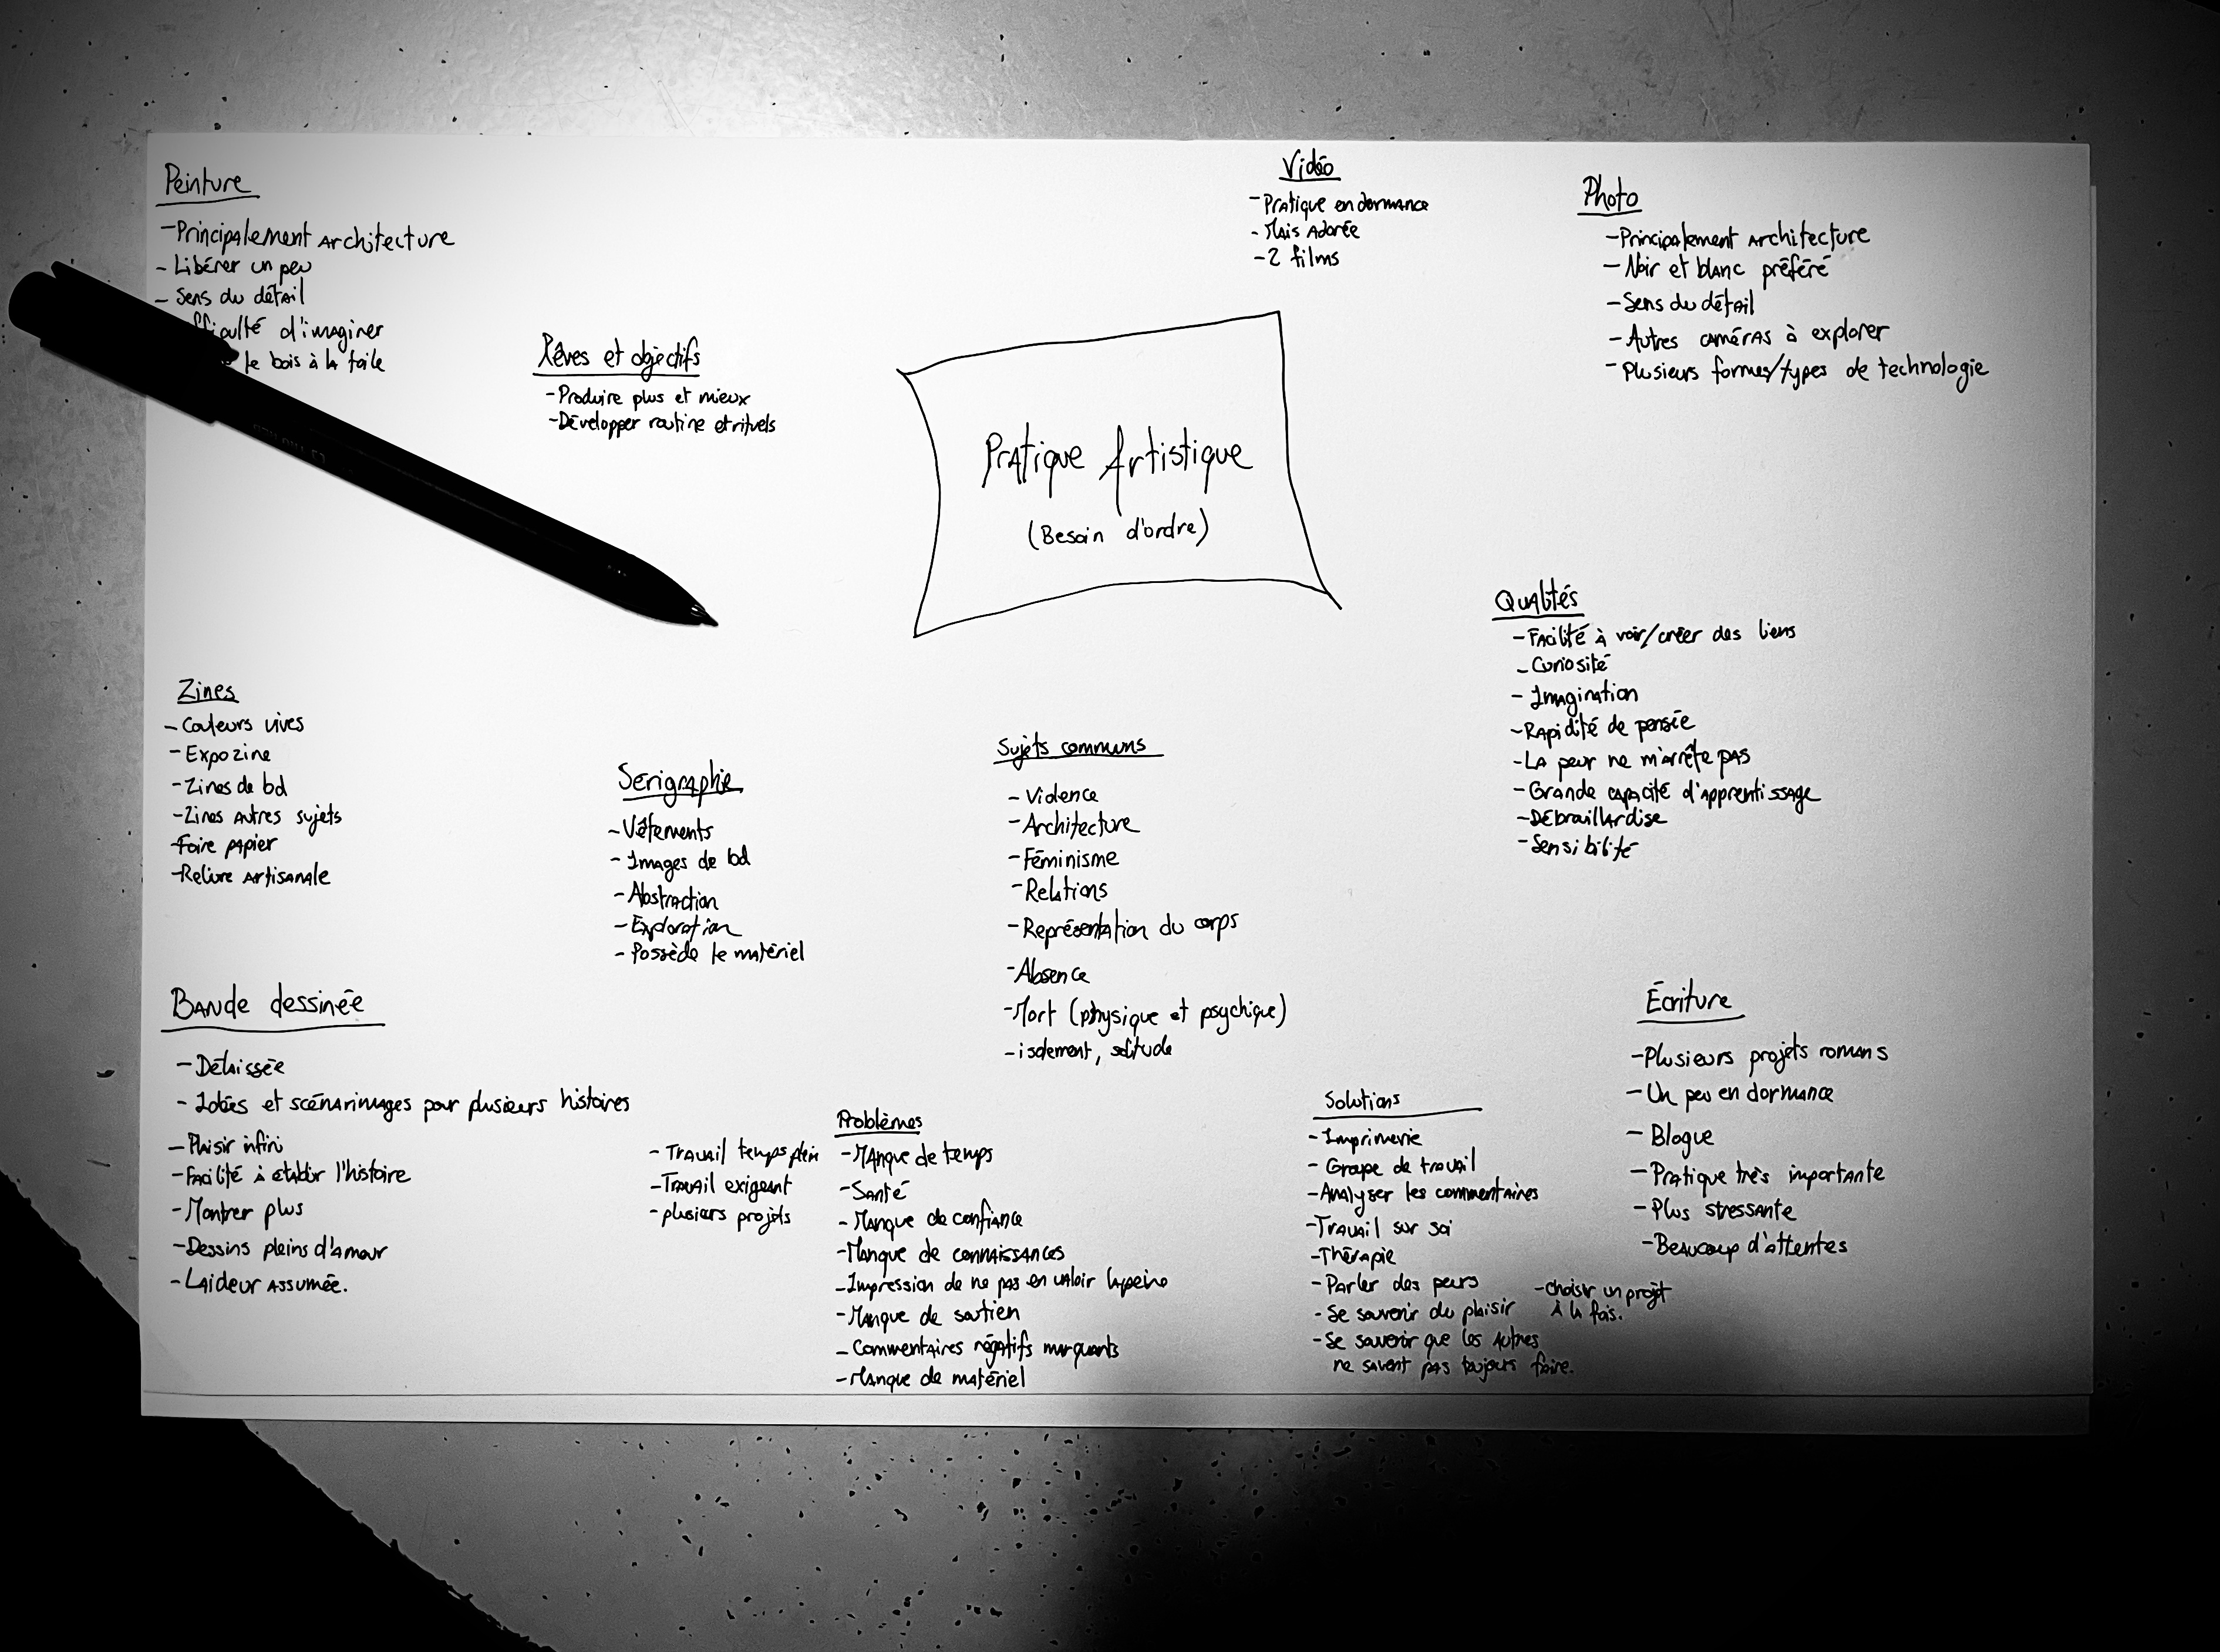 Peinture
- Principalement architecture
- Libérer un peu
- Sens du détail
d'imaginer
le bois à la toile
Rêves et objectifs
- Produire plus et mieux
- Développer routine et rituels
Vidéo
- Pratique en dormance
- Mais adorée
- 2 films
Photo
- Principalement architecture
- Noir et blanc préféré
- Sens du détail
- Autres caméras à explorer
- Plusieurs formes/types de technologie
Pratique Artistique
(Besoin d'ordre)
Qualités
- Facilité à voir/créer des liens
- Curiosité
- Imagination
- Rapidité de pensée
- La peur ne m'arrête pas
- Grande capacité d'apprentissage
- Débraillardise
- Sensibilité
Zines
- Couleurs vives
- Expozine
- Zines de bd
- Zines autres sujets
- Foire papier
- Reliure artisanale
Sérigraphie
- Vêtements
- Images de bd
- Abstraction
- Exploration
- Possède le matériel
Sujets communs
- Violence
- Architecture
- Féminisme
- Relations
- Représentation du corps
- Absence
- Mort (physique et psychique)
- isolement, solitude
Bande dessinée
- Délaissée
- Idées et scénarimages pour plusieurs histoires
- Plaisir infini
- Facilité à établir l'histoire
- Montrer plus
- Dessins pleins d'amour
- Laideur assumée.
- Travail temps plein
- Travail exigeant
- plusieurs projets
Problèmes
- Manque de temps
- Santé
- Manque de confiance
- Manque de connaissances
- Impression de ne pas en valoir la peine
- Manque de soutien
- Commentaires négatifs marquants
- Manque de matériel
Solutions
- Imprimerie
- Groupe de travail
- Analyser les commentaires
- Travail sur soi
- Thérapie
- Parler des peurs
- Se souvenir du plaisir
- Se souvenir que les autres
ne savent pas toujours faire.
- choisir un projet
à la fois.
Écriture
- Plusieurs projets romans
- Un peu en dormance
- Blogue
- Pratique très importante
- Plus stressante
- Beaucoup d'attentes